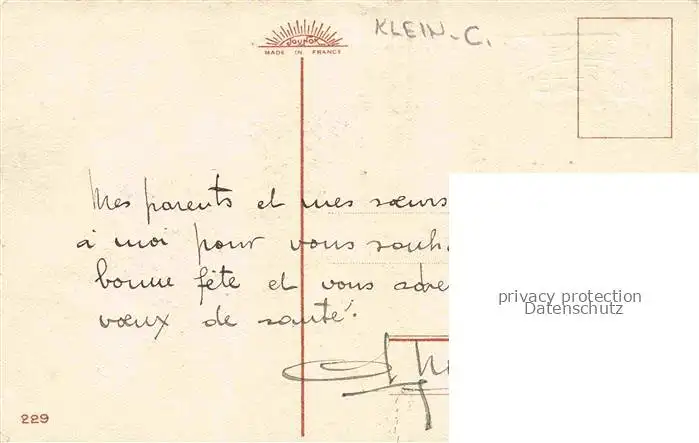 KLEIN-C.
MADE IN FRANCE
Mes parents et mes sœurs
à moi pour vous souh
bonne fête et vous adre
vœux de santé.
privacy protection
Datenschutz
229